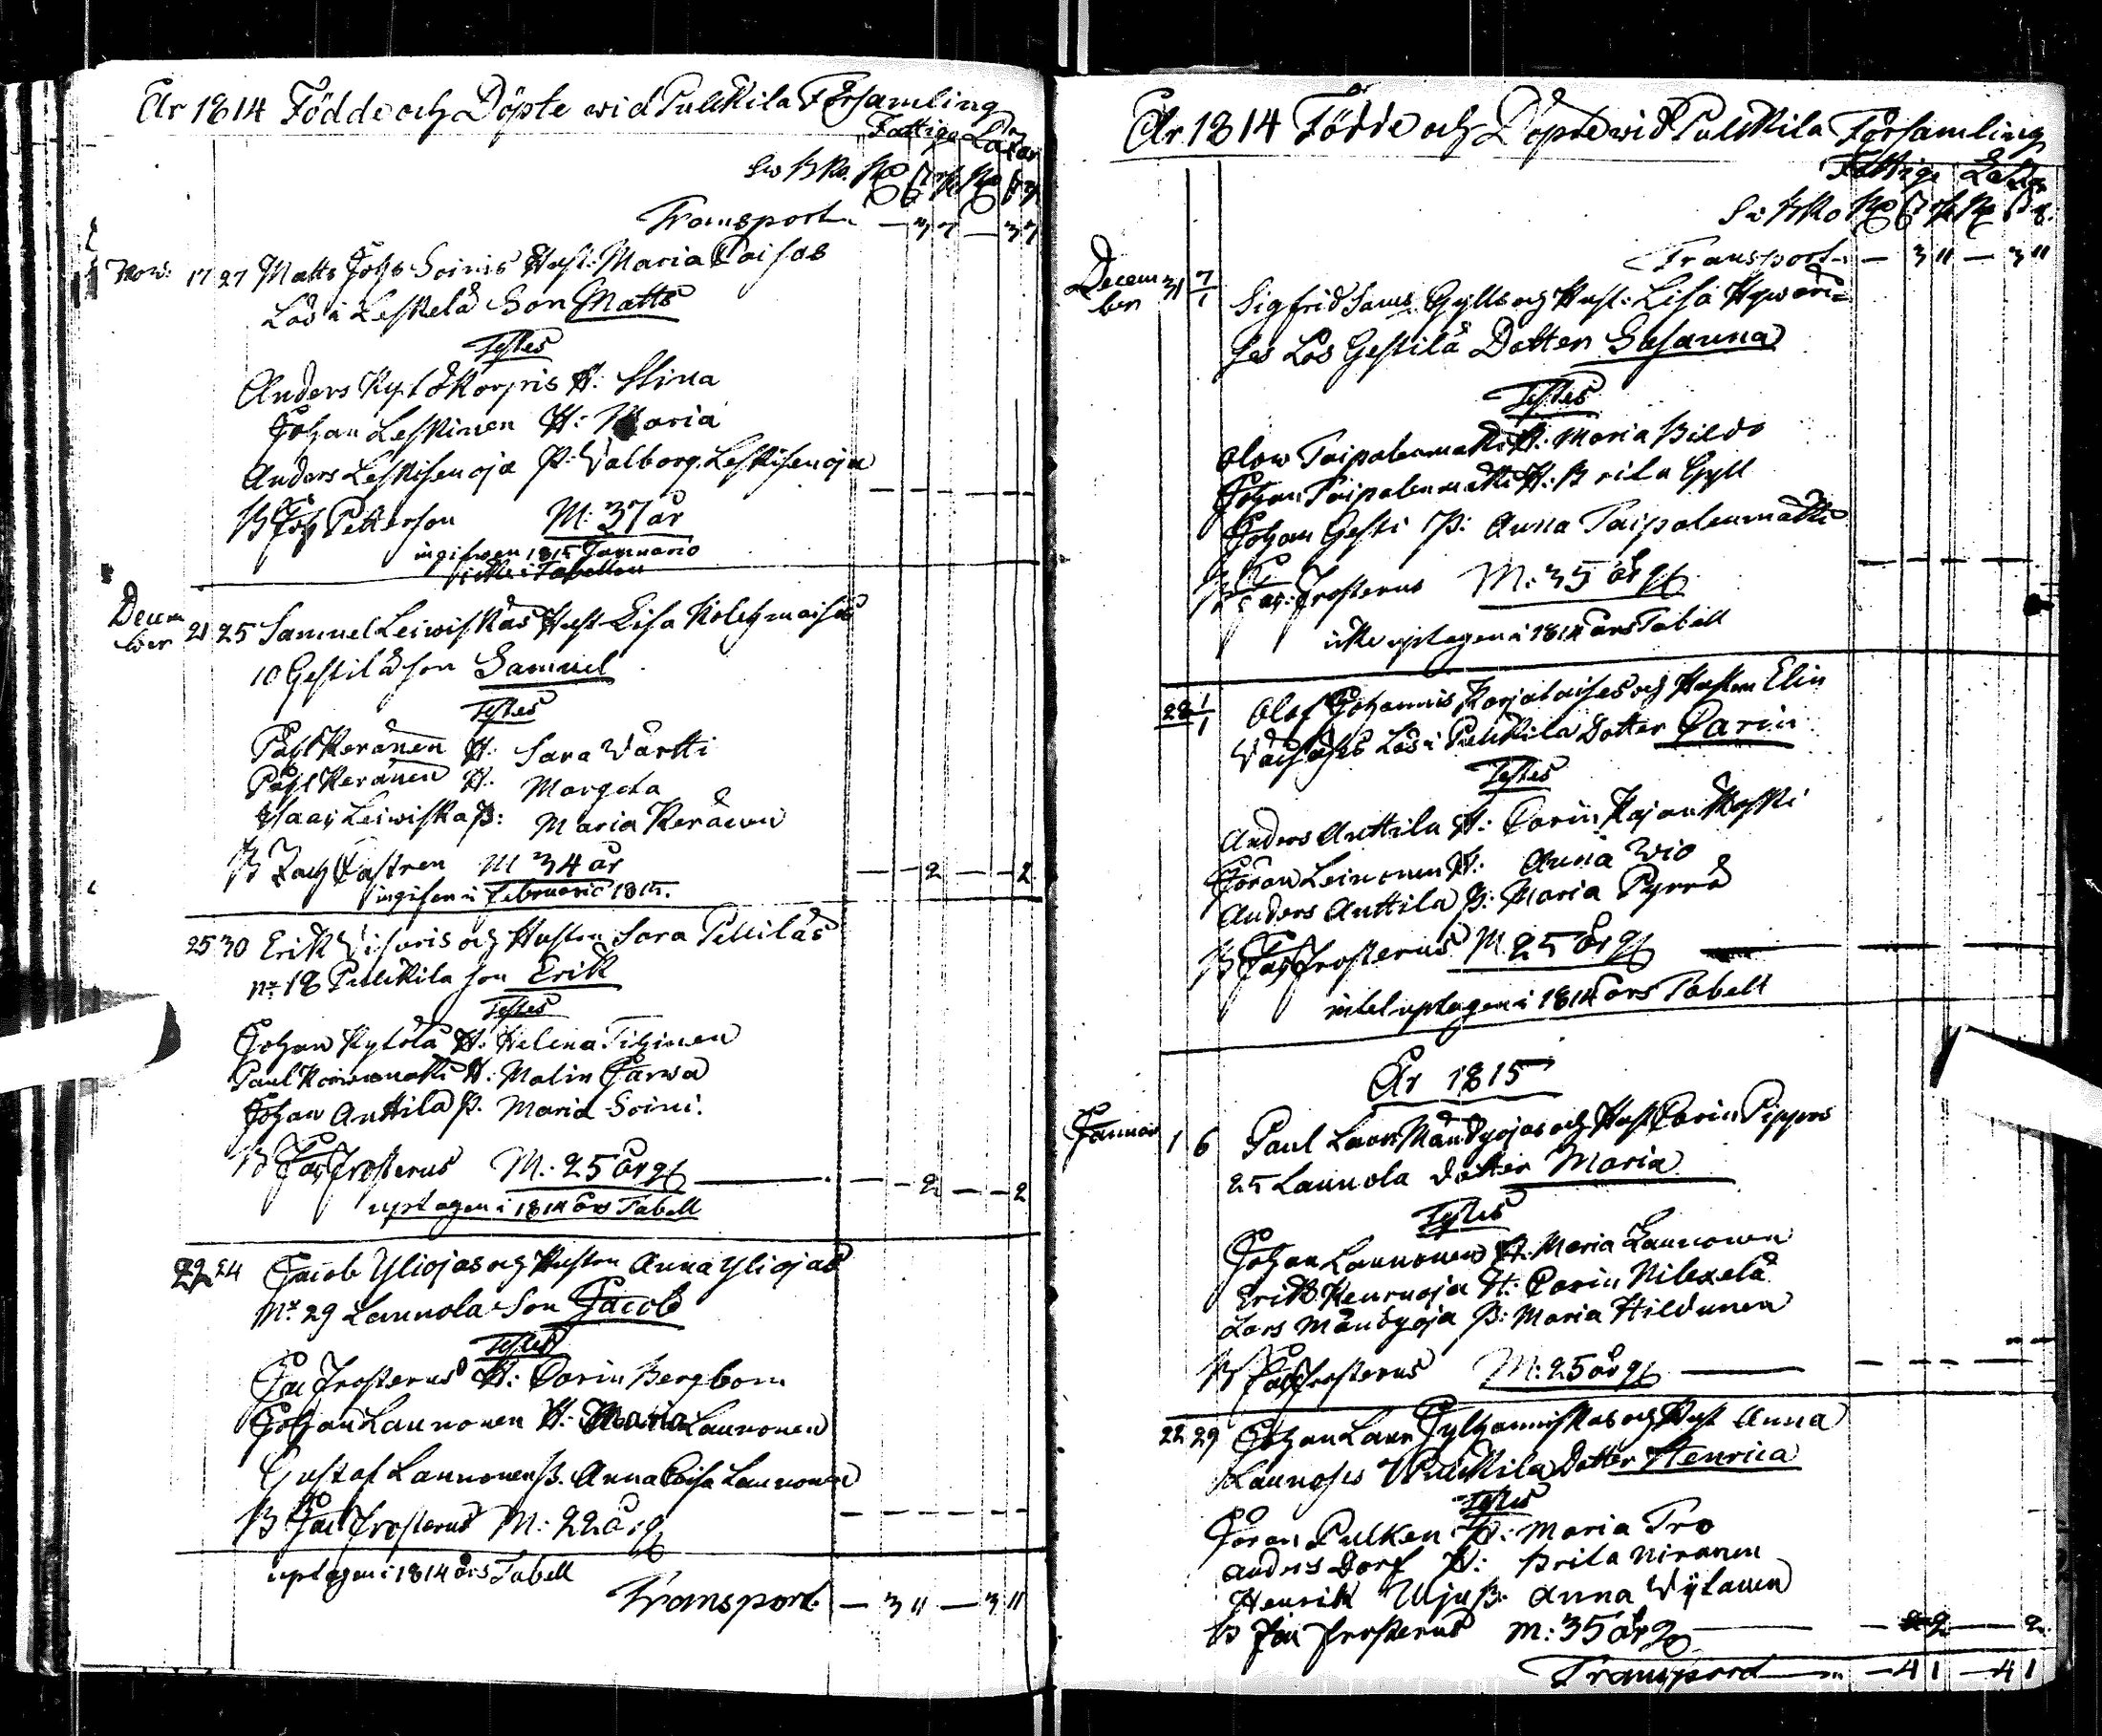 År 1814 Födde och Döpte wid Pulkkila Församling
Fattige Lasar
Transport — 37 — 37
Now: 17 27 Matts Johs Soinis Hust: Maria Caisas
Lös i Leskelä Son Matts
Testes
Anders Kylökorpis H: Stina
Johan Leskinen H: Maria
Anders Leskisenoja P: Walborg Leskisenoja
B Joh Petterson M: 37 år
ingifwen 1815 Januario
icke i Tabellen
Decem
ber 21 25 Samuel Leiwiskas Hust Lisa Kolehmaises
10 Gestilä son Samuel
Testes
Påhl Keränen H: Sara Wärtti
Påhl Keränen H: Margeta
Isaac Leiwiska P: Maria Keränen
B Zach Castren M 34 år — — 2 — — 2
ingifen i Februario 1815.
25 30 Erik Wisuris och Hustru Sara Pellilas
No 18 Pulkkila son Erik
Testes
Johan Kylölä H: Helena Tihinen
Paul H: Malin Jarwa
Johan Anttila P. Maria Soini.
B Jac Frosterus M: 25 år — — 2 — — 2
uptagen i 1814 års Tabell
22 24 Jacob Yliojas och Hustru Anna Yliojas
No 29 Launola Son Jacob
Testes
Jac Frosterus H: Carin Bergbom
Johan Launonen H: Maria Launonen
Gustaf Launonen P. Anna Caisa Launonen
B Jac Frosterus M: 22 år
uptagen i 1814 års Tabell
Transport — 3 11 — 3 11
År 1814 Födde och Döpte wid Pulkkila Församling
Fattige Lasar
Transport — 3 11 — 3 11
Decem
ber 31 7/1 Sigfrid Sams Gylls och Hust: Lisa Hywäri=
ses Lös Gestilä Dotter Susanna
Testes
Olow Taipalenmatti H: Maria Bildo
Johan Taipalenmatti H: Brita Gyll
Johan Gesti P: Anna Taipalenmatti
B Jac: Frosterus M: 35 år
icke uptagen i 1814 års Tabell
28 1/1 Olof Johannis Karjalaises och Hustru Elin
Wäisäses Lös i Pulkkila Dotter Carin
Testes
Anders Anttila H: Carin Kajankoski
Göran Leinonen H: Anna Wio
Anders Anttila P: Maria Pyrrö
B Jac Frosterus M. 25 år
intet uptagen i 1814 års Tabell
År 1815
Januar 1 6 Paul Lars Mändyojas och Hust Carin Pippos
25 Launola dotter Maria
Testes
Johan Launonen H: Maria Launonen
Erik Keuruoja H: Carin Nilexelä
Lars Mändyoja P: Maria Hildunen
B Jac Frosterus M: 25 år
22 29 Johan Lars Jylhänniskas och Hust Anna
Launoses Pulkkila Dotter Henrica
Testes
Göran Pulken H: Maria Tro
Anders Dorf H: Brita Niranen
Henrik Uljus P. Anna Wylanen
B Jac Frosterus M: 35 år — 2 — 2
Transport — 4 1 — 4 1